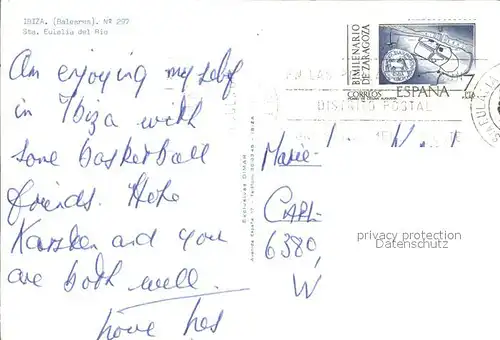 IBIZA. (Baleares) Nº 297
Sta. Eulalia del Rio
BIMILENARIO
DE ZARAGOZA
7
PTA
CORREOS
ESPAÑA
DISTRITO POSTAL
Am enjoying my self
in Ibiza with
some basketball
friends. Hope
Karsten and you
are both well.
Love
Exclusivas DIMAR
IBIZA
Marie-
6380,
W
privacy protection
Datenschutz